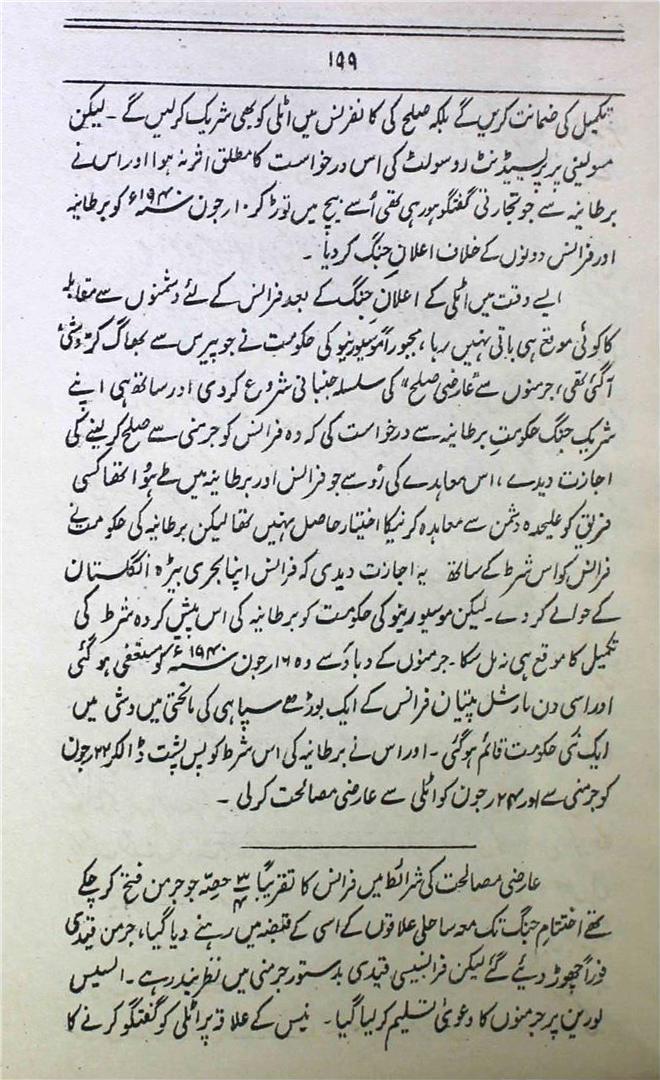 ۱۹۹
تکمیل کی ضمانت کریں گے بلکہ صلح کی کانفرنس میں اٹلی کو بھی شریک کرلیں گے ۔ لیکن
مسولینی پر پریسیڈنٹ روسولٹ کی اس درخواست کا مطلق اثر نہ ہوا اور اس نے
برطانیہ سے جو تجارتی گفتگو ہو رہی تھی اُسے بیچ میں توڑ کر ۱۰ر جون سنہ ۱۹۴۰ء کو برطانیہ
اور فرانس دونوں کے خلاف اعلانِ جنگ کردیا ۔
ایسے وقت میں اٹلی کے اعلانِ جنگ کے بعد فرانس کے لئے دشمنوں سے مقابلہ
کا کوئی موقع ہی باقی نہیں رہا ، مجبوراً موسیو رینو کی حکومت نے جو پیرس سے بھاگ کر وِشی
آگئی تھی ، جرمنوں سے "عارضی صلح" کی سلسلہ جنبانی شروع کردی اور ساتھ ہی اپنے
شریکِ جنگ حکومتِ برطانیہ سے درخواست کی کہ وہ فرانس کو جرمنی سے صلح کرلینے کی
اجازت دیدے ، اس معاہدے کی رُو سے جو فرانس اور برطانیہ میں طے ہوُا تھا کسی
فریق کو علیحدہ دشمن سے معاہدہ کرنیکا اختیار حاصل نہیں تھا لیکن برطانیہ کی حکومت نے
فرانس کو اس شرط کے ساتھ یہ اجازت دیدی کہ فرانس اپنا بحری بیڑہ انگلستان
کے حوالے کردے ۔ لیکن موسیو رینو کی حکومت کو برطانیہ کی اس پیش کردہ شرط کی
تکمیل کا موقع ہی نہ مل سکا ۔ جرمنوں کے دباؤ سے وہ ۱۶ر جون سنہ ۱۹۴۰ء کو مستعفی ہوگئی
اور اسی دن مارشل پتیان فرانس کے ایک بوڑھے سپاہی کی ماتحتی میں وشی میں
ایک نئی حکومت قائم ہوگئی ۔ اور اس نے برطانیہ کی اس شرط کو پس پشت ڈالکر ۲۲ر جون
کو جرمنی سے اور ۲۴ر جون کو اٹلی سے عارضی مصالحت کرلی ۔
عارضی مصالحت کی شرائط میں فرانس کا تقریباً ۳/۴ حصّہ جو جرمن فتح کرچکے
تھے اختتامِ جنگ تک معہ ساحلی علاقوں کے اسی کے قبضہ میں رہنے دیا گیا ، جرمن قیدی
فوراً چھوڑ دیئے گئے لیکن فرانسیسی قیدی بدستور جرمنی میں نظر بند رہے ۔ السیس
لورین پر جرمنوں کا دعویٰ تسلیم کرلیا گیا ۔ نیس کے علاقہ پر اٹلی کو گفتگو کرنے کا